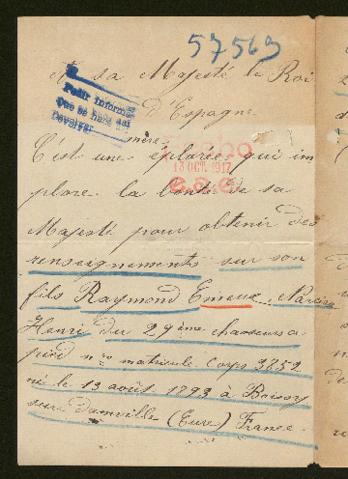 57569
A sa Majesté le Roi
d'Espagne
Pedir informes
Que se hace así
Devolver
13 OCT. 1917
C'est une mère éplorée, qui im
plore la bonté de sa
Majesté pour obtenir des
renseignements sur son
fils Raymond Emeux, Narcisse
Henri du 29ème chasseurs a
pied nro matricule Corps 3852
né le 13 août 1893 à Boissy
sur Damville (Eure) France.